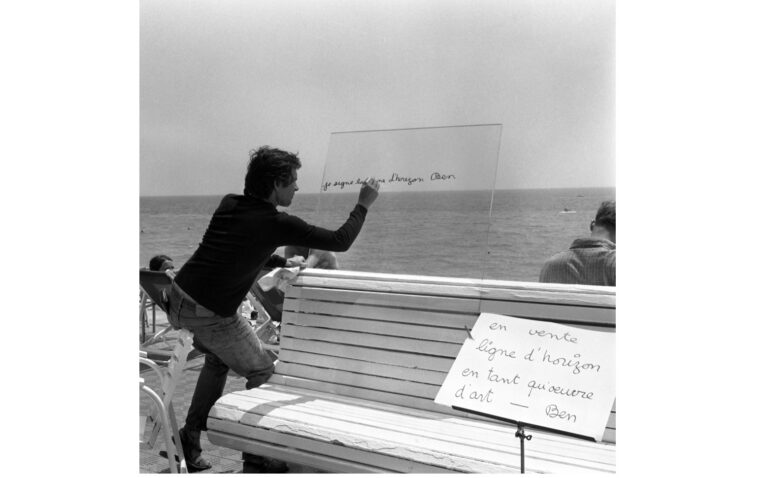 je signe la ligne d'horizon Ben
en vente
ligne d'horizon
en tant qu'œuvre
d'art — Ben